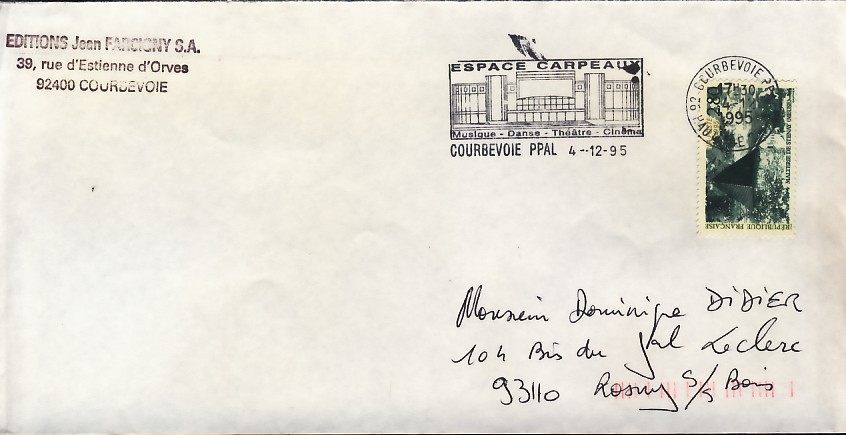 EDITIONS Jean FARCIGNY S.A.
39, rue d'Estienne d'Orves
92400 COURBEVOIE
ESPACE CARPEAUX
Musique - Danse - Théâtre - Cinéma
COURBEVOIE PPAL 4 -12-95
92 COURBEVOIE
17H30
1995
RÉPUBLIQUE FRANÇAISE
Monsieur Dominique DIDIER
104 Bis du Gal Leclerc
93110 Rosny S/s Bois